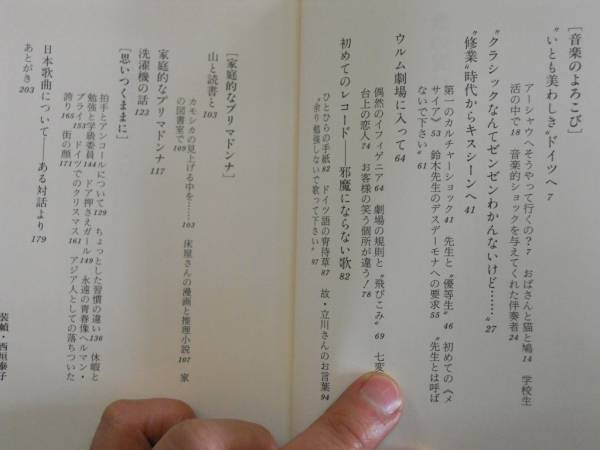 ［音楽のよろこび］
〝いとも美わしき〟ドイツへ 7
アーシャウへそうやって行くの？ 7　おばさんと猫と鳩 14　学校生
活の中で 18　音楽的ショックを与えてくれた伴奏者 24
〝クラシックなんてゼンゼンわかんないけど……〟27
〝修業〟時代からキスシーンへ 41
第一のカルチャーショック 41　先生と〝優等生〟 46　初めての《メ
サイア》 53　鈴木先生のデスデーモナへの要求 55　〝先生とは呼ば
ないで下さい〟 61
ウルム劇場に入って 64
偶然のイフィゲニア 64　劇場の規則と〝飛びこみ〟 69　七変
台上の恋人 74　お客様の笑う個所が違う！ 78
初めてのレコード——邪魔にならない歌 82
ひとひらの手紙 82　ドイツ語の青待草 87　故・立川さんのお言葉 94
〝余り勉強しないで歌って下さい〟 97
［家庭的なプリマドンナ］
山と読書と 103
カモシカの見上げる中を…… 103　床屋さんの漫画と推理小説 107　家
の図書室で 109
家庭的なプリマドンナ 117
洗濯機の話 123
［思いつくままに］
拍手とアンコールについて 129　ちょっとした習慣の違い 136　休暇と
勉強と学級委員 144　ドア押さえガール 149　永遠の青春像ヘルマン・
プライ 153　ドイツでのクリスマス 161　アジア人としての落ちついた
誇り 165　街の顔 171
日本歌曲について——ある対話より 179
あとがき 203
装幀・西垣泰子